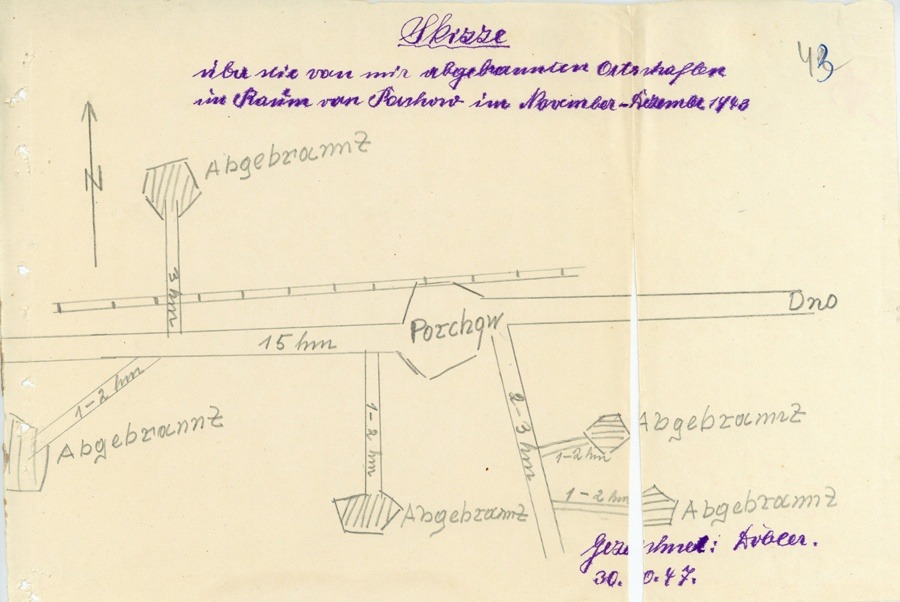 Skizze
43
über die von mir abgebrannten Ortschaften
im Raum von Porchow im November-Dezember 1943
N
Abgebrannt
3 km
Dno
Porchow
15 km
1-2 km
Abgebrannt
1-2 km
2-3 km
Abgebrannt
1-2 km
1-2 km
Abgebrannt
Abgebrannt
Gezeichnet: Döbler.
30. 0.47.